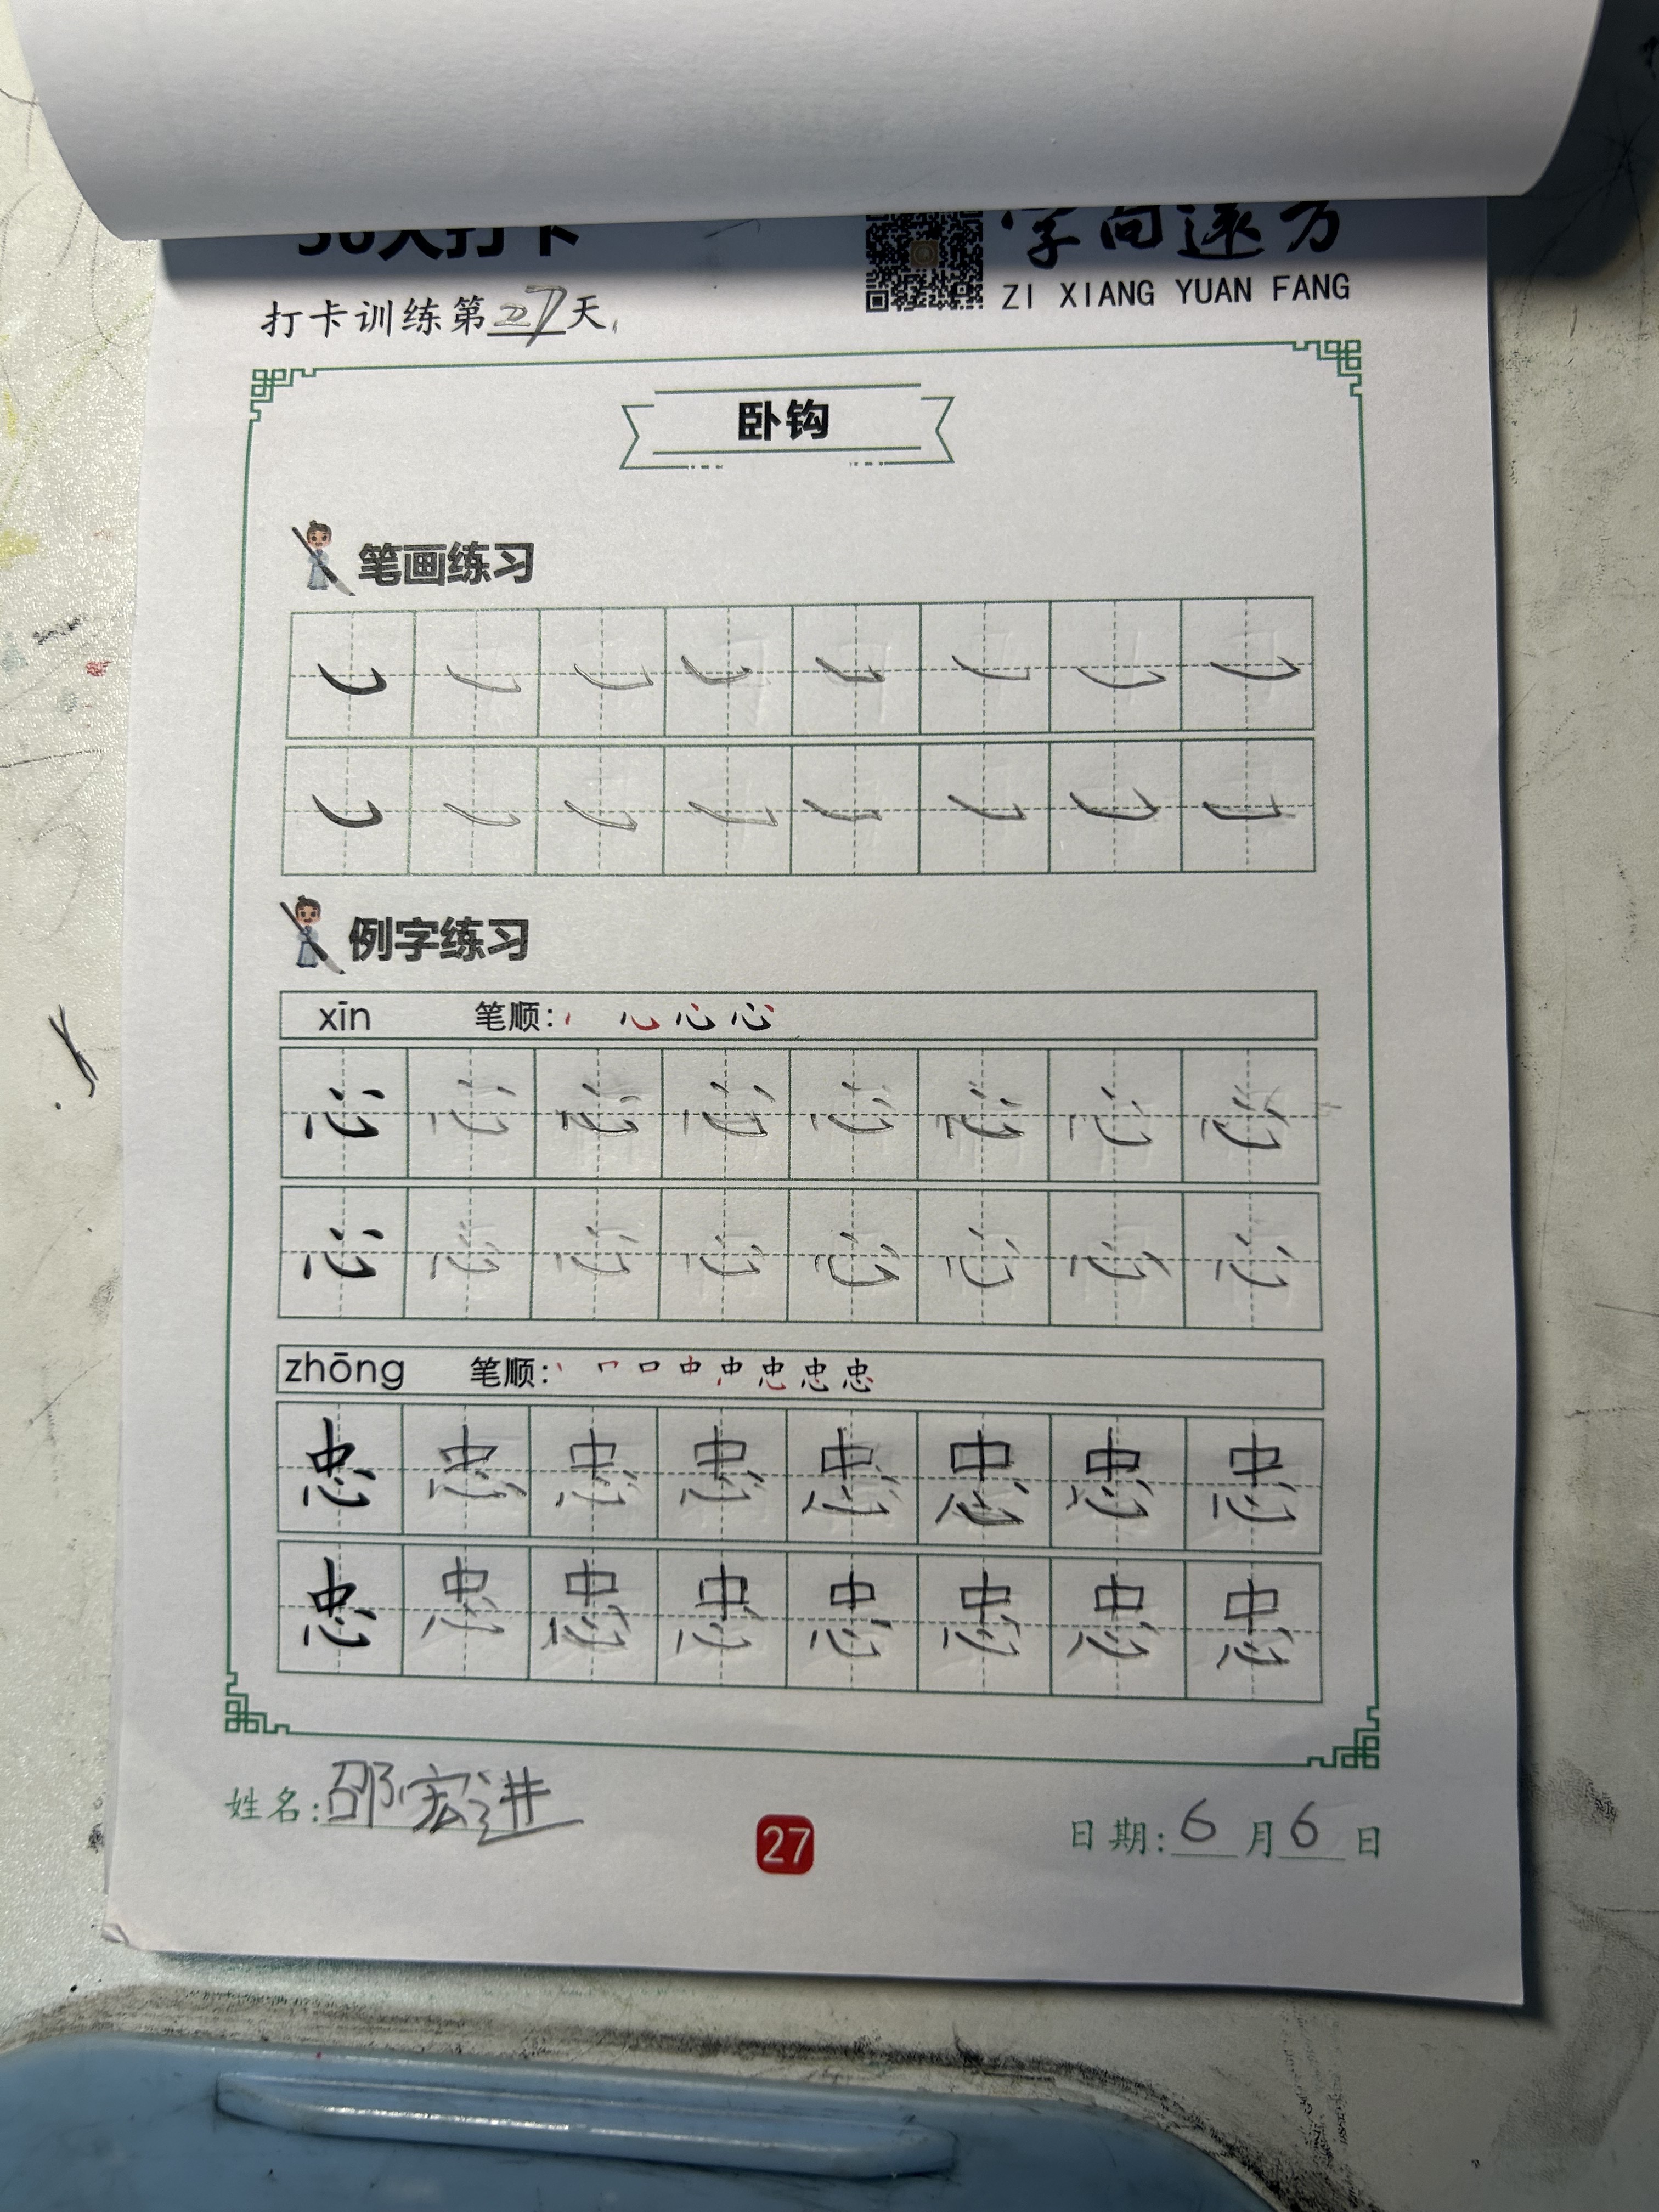 30天打卡
字向远方
ZI XIANG YUAN FANG
打卡训练第27天
卧钩
笔画练习
例字练习
xīn 笔顺: 心
心 心 心 心 心 心 心 心
心 心 心 心 心 心 心 心
zhōng 笔顺: 口 中 忠 忠
忠 忠 忠 忠 忠 忠 忠 忠
忠 忠 忠 忠 忠 忠 忠 忠
姓名:邵宏进
27
日期:6月6日